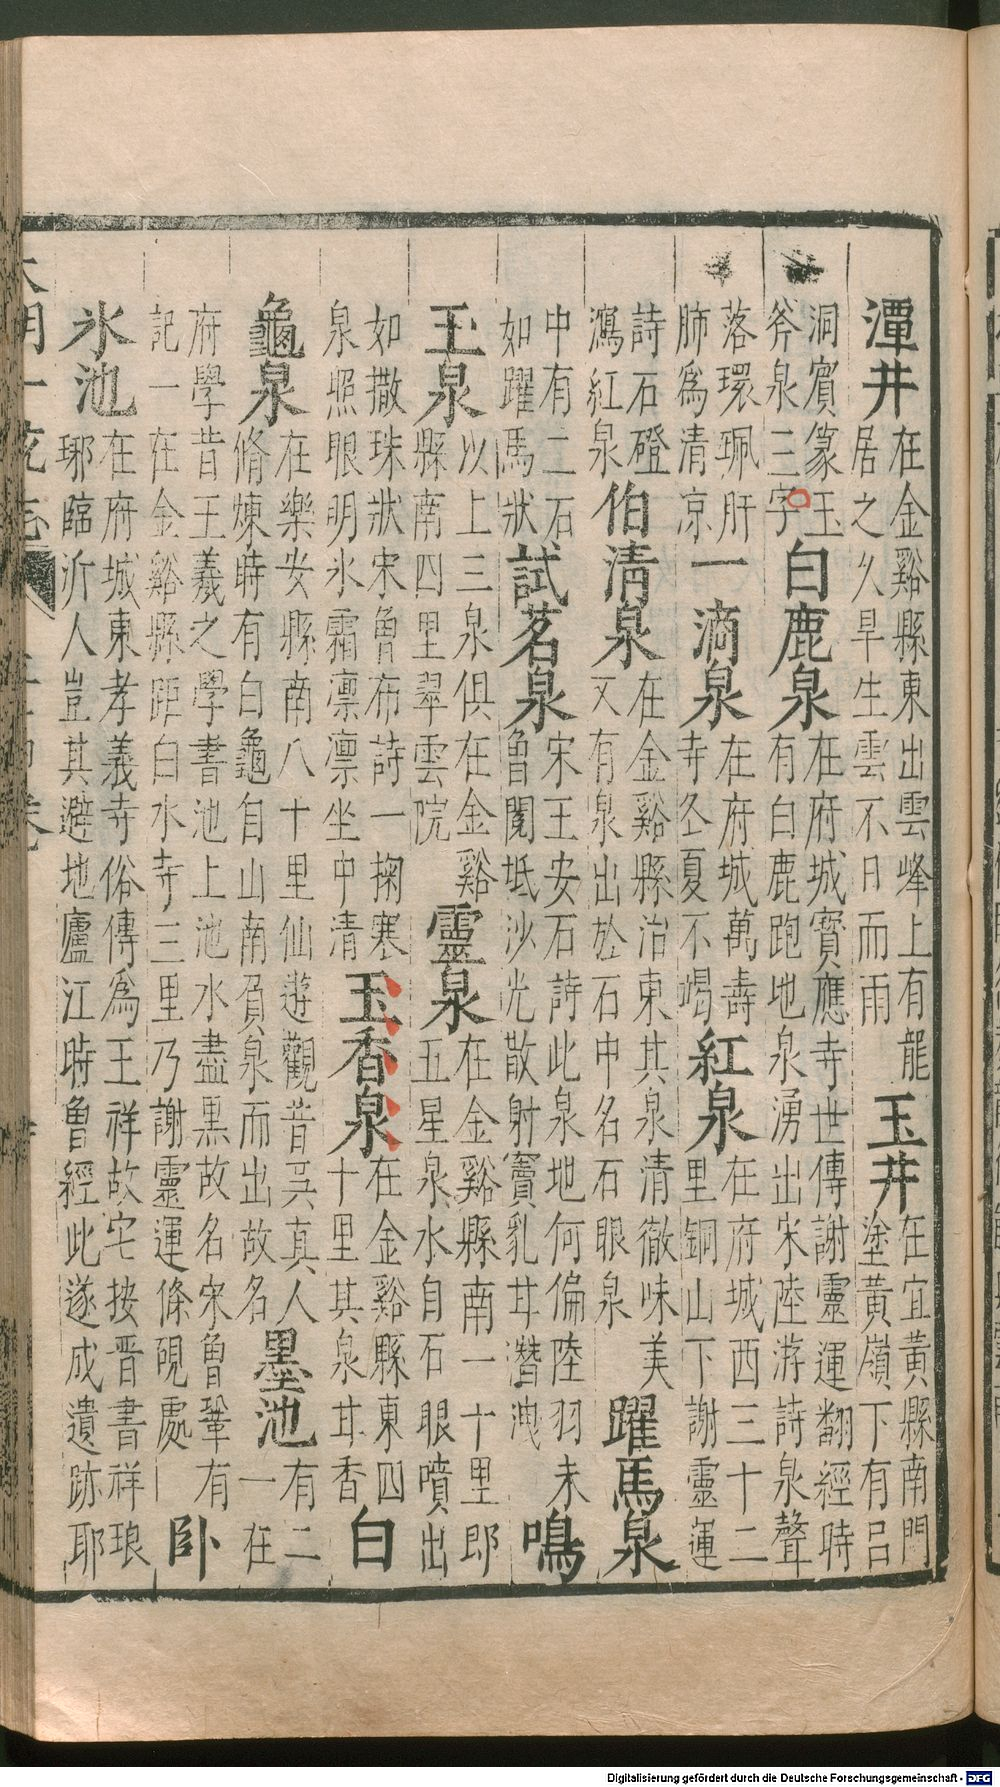 潭井
在金谿縣東出雲峰上有龍
居之久旱生雲不日而雨
玉井
在宜黃縣南門
塗黃嶺下有呂
洞賓篆玉
斧泉三字
白鹿泉
在府城寶應寺世傳謝靈運翻經時
有白鹿跑地泉湧出宋陸游詩泉聲
落環珮肝
肺爲清凉
一滴泉
在府城萬壽
寺冬夏不竭
紅泉
在府城西三十二
里銅山下謝靈運
詩石磴
瀉紅泉
伯清泉
在金谿縣治東其泉清徹味美
又有泉出於石中名石眼泉
躍馬泉
中有二石
如躍馬狀
試茗泉
宋王安石詩此泉地何偏陸羽未
魯閱坻沙光散射竇乳甘潛洩
鳴
玉泉
以上三泉俱在金谿
縣南四里翠雲院
靈泉
在金谿縣南一十里郎
五星泉水自石眼噴出
如撒珠狀宋魯布詩一掬寒
泉照眼明氷霜凛凛坐中清
玉香泉
在金谿縣東四
十里其泉甘香
白
龜泉
在樂安縣南八十里仙遊觀昔吳真人
脩煉時有白龜自山南負泉而出故名
墨池
有二
一在
府學昔王羲之學書池上池水盡黑故名宋魯鞏有
記一在金谿縣距白水寺三里乃謝靈運滌硯處
臥
氷池
在府城東孝義寺俗傳爲王祥故宅按晋書祥琅
琊臨沂人豈其避地廬江時魯經此遂成遺跡耶
Digitalisierung gefördert durch die Deutsche Forschungsgemeinschaft - DFG